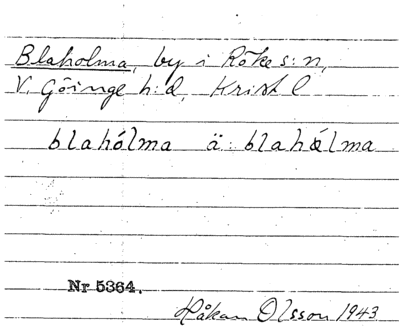 Blaholma, by i Röke s:n,
V. Göinge h:d, Krist l
blahólma ä: blahǽlma
Nr 5364.
Håkan Olsson 1943